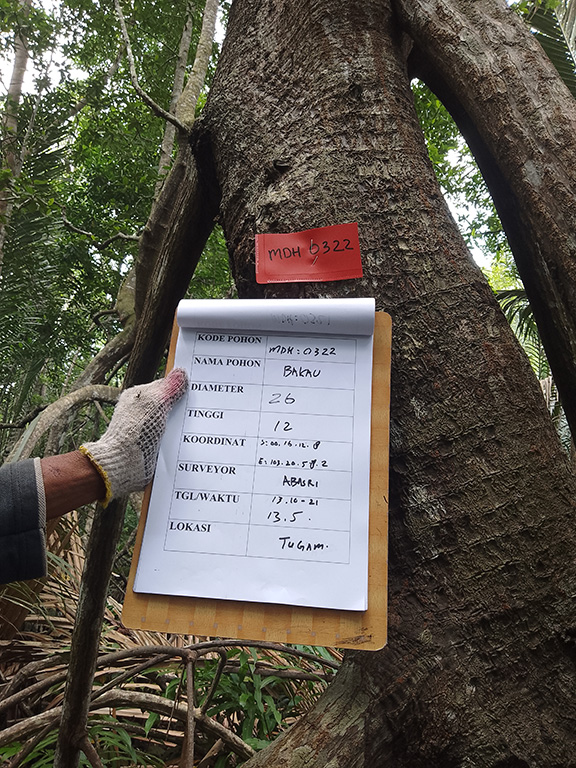 MDH 0322
KODE POHON MDH : 0322
NAMA POHON BAKAU
DIAMETER 26
TINGGI 12
KOORDINAT S : 00. 16. 12. 8
E : 103. 20. 5 8. 2
SURVEYOR ABASRI
TGL/WAKTU 13-10-21
13.5.
LOKASI TUGAM.